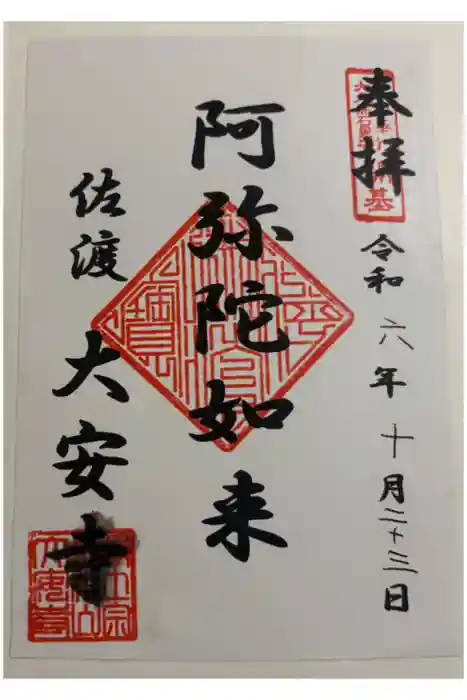 奉拝
令和六年十月二十三日
阿弥陀如来
佐渡大安寺